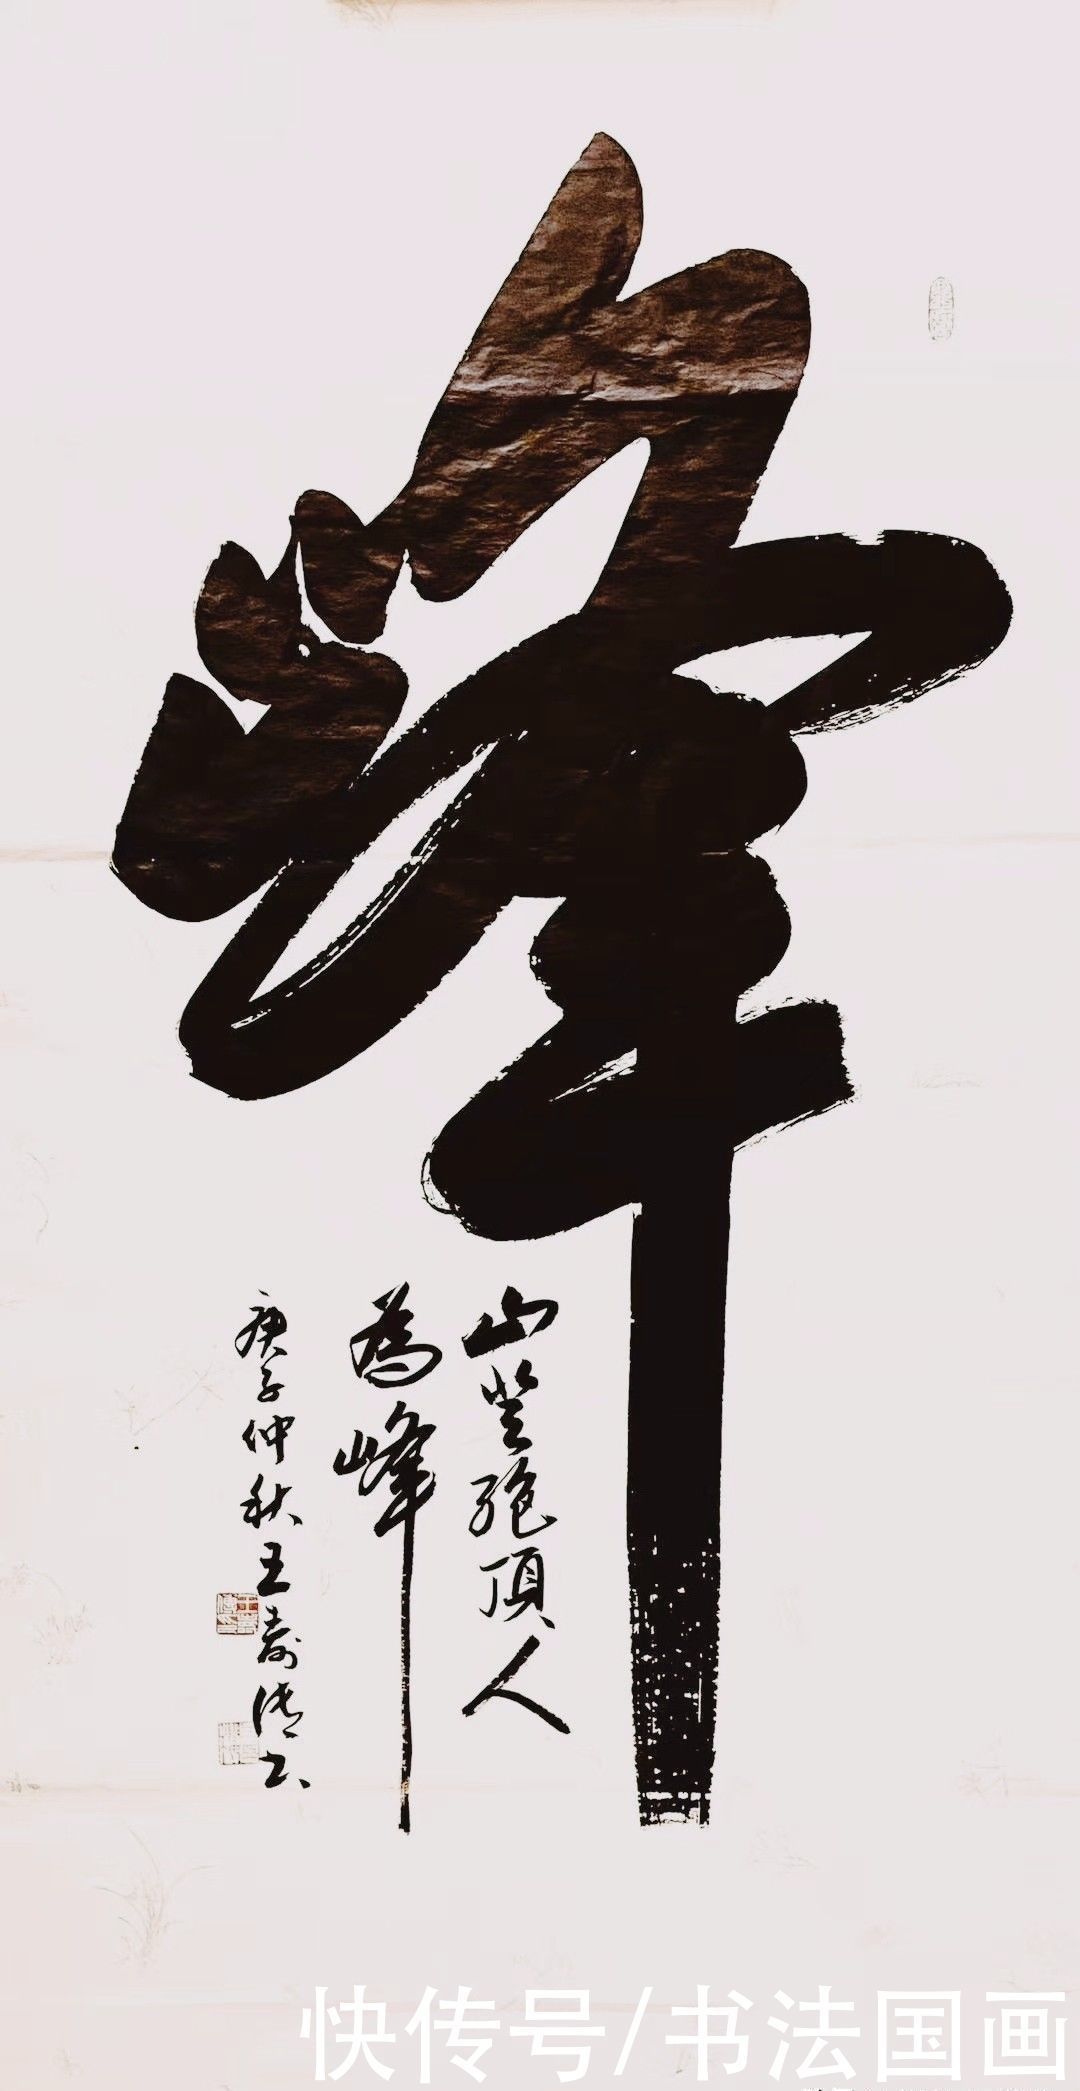 峰
山登絕頂人
為峰
庚子仲秋王壽清書
快传号/书法国画